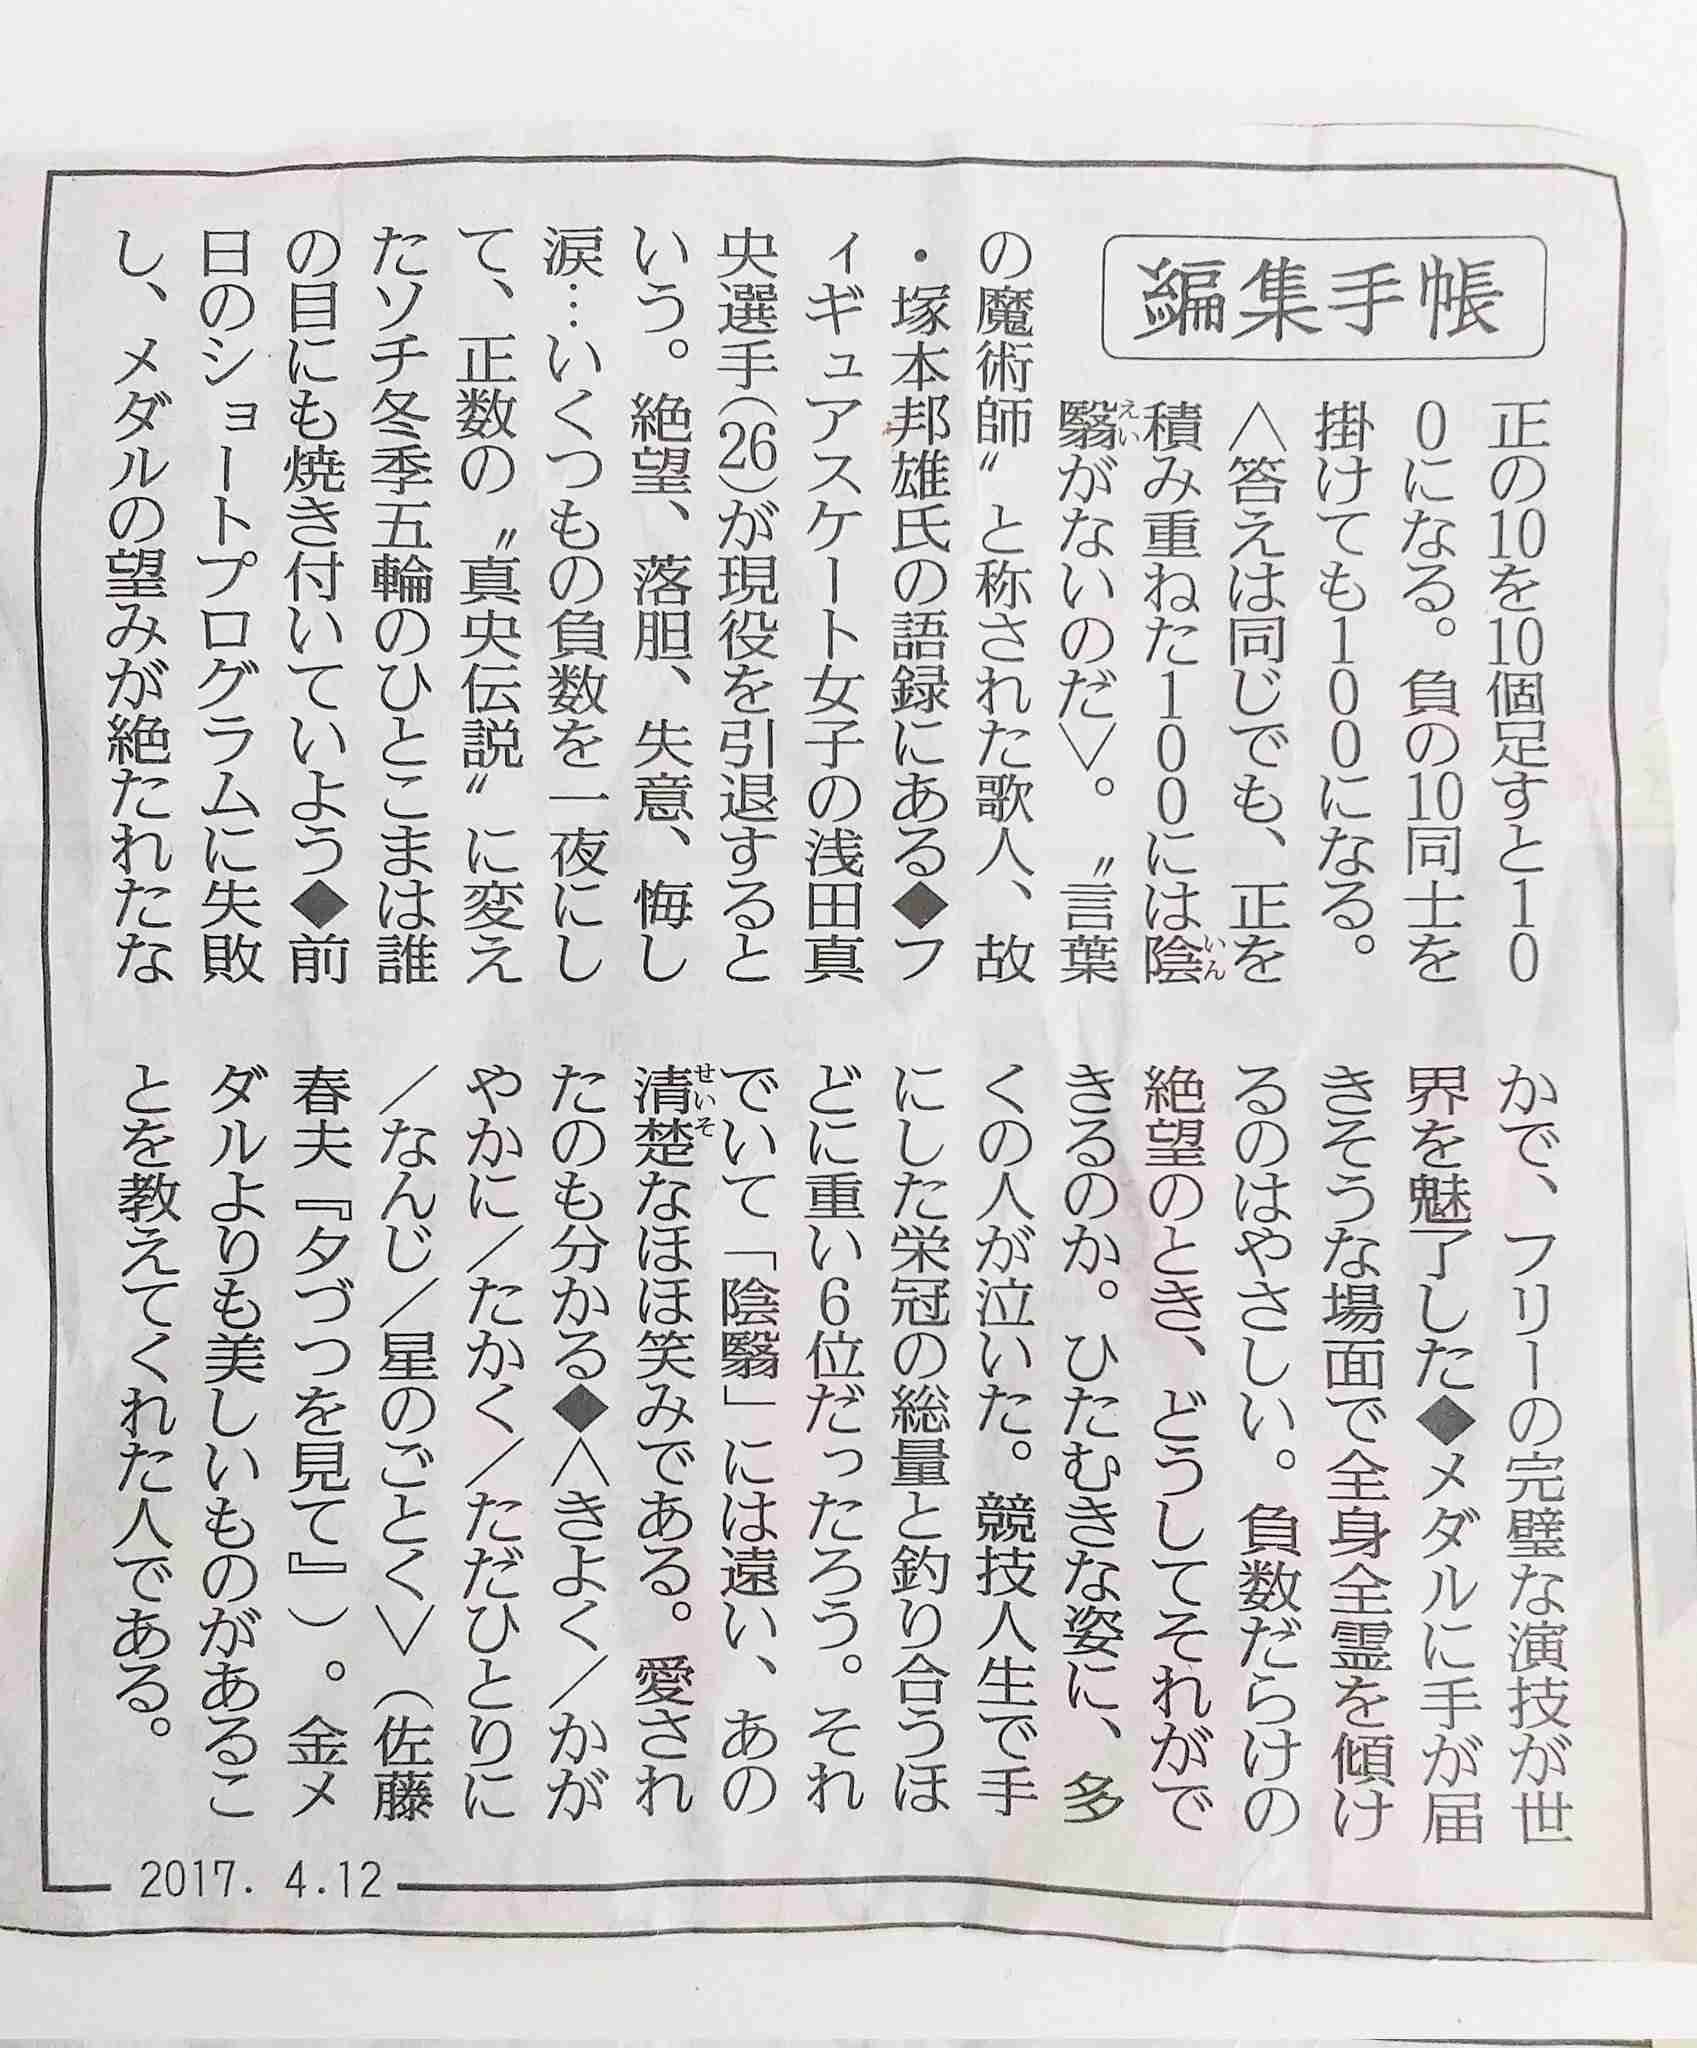 編集手帳
正の10を10個足すと10
0になる。負の10同士を
掛けても100になる。
〈答えは同じでも、正を
積み重ねた100には陰いん
翳えいがないのだ〉。〝言葉
の魔術師〟と称された歌人、故
・塚本邦雄氏の語録にある◆フ
ィギュアスケート女子の浅田真
央選手(26)が現役を引退すると
いう。絶望、落胆、失意、悔し
涙…いくつもの負数を一夜にし
て、正数の〝真央伝説〟に変え
たソチ冬季五輪のひとこまは誰
の目にも焼き付いていよう◆前
日のショートプログラムに失敗
し、メダルの望みが絶たれたな
かで、フリーの完璧な演技が世
界を魅了した◆メダルに手が届
きそうな場面で全身全霊を傾け
るのはやさしい。負数だらけの
絶望のとき、どうしてそれがで
きるのか。ひたむきな姿に、多
くの人が泣いた。競技人生で手
にした栄冠の総量と釣り合うほ
どに重い6位だったろう。それ
でいて「陰翳」には遠い、あの
清楚せいそなほほ笑みである。愛され
たのも分かる◆〈きよく/かが
やかに/たかく/ただひとりに
/なんじ/星のごとく〉(佐藤
春夫『夕づつを見て』)。金メ
ダルよりも美しいものがあるこ
とを教えてくれた人である。
2017. 4.12